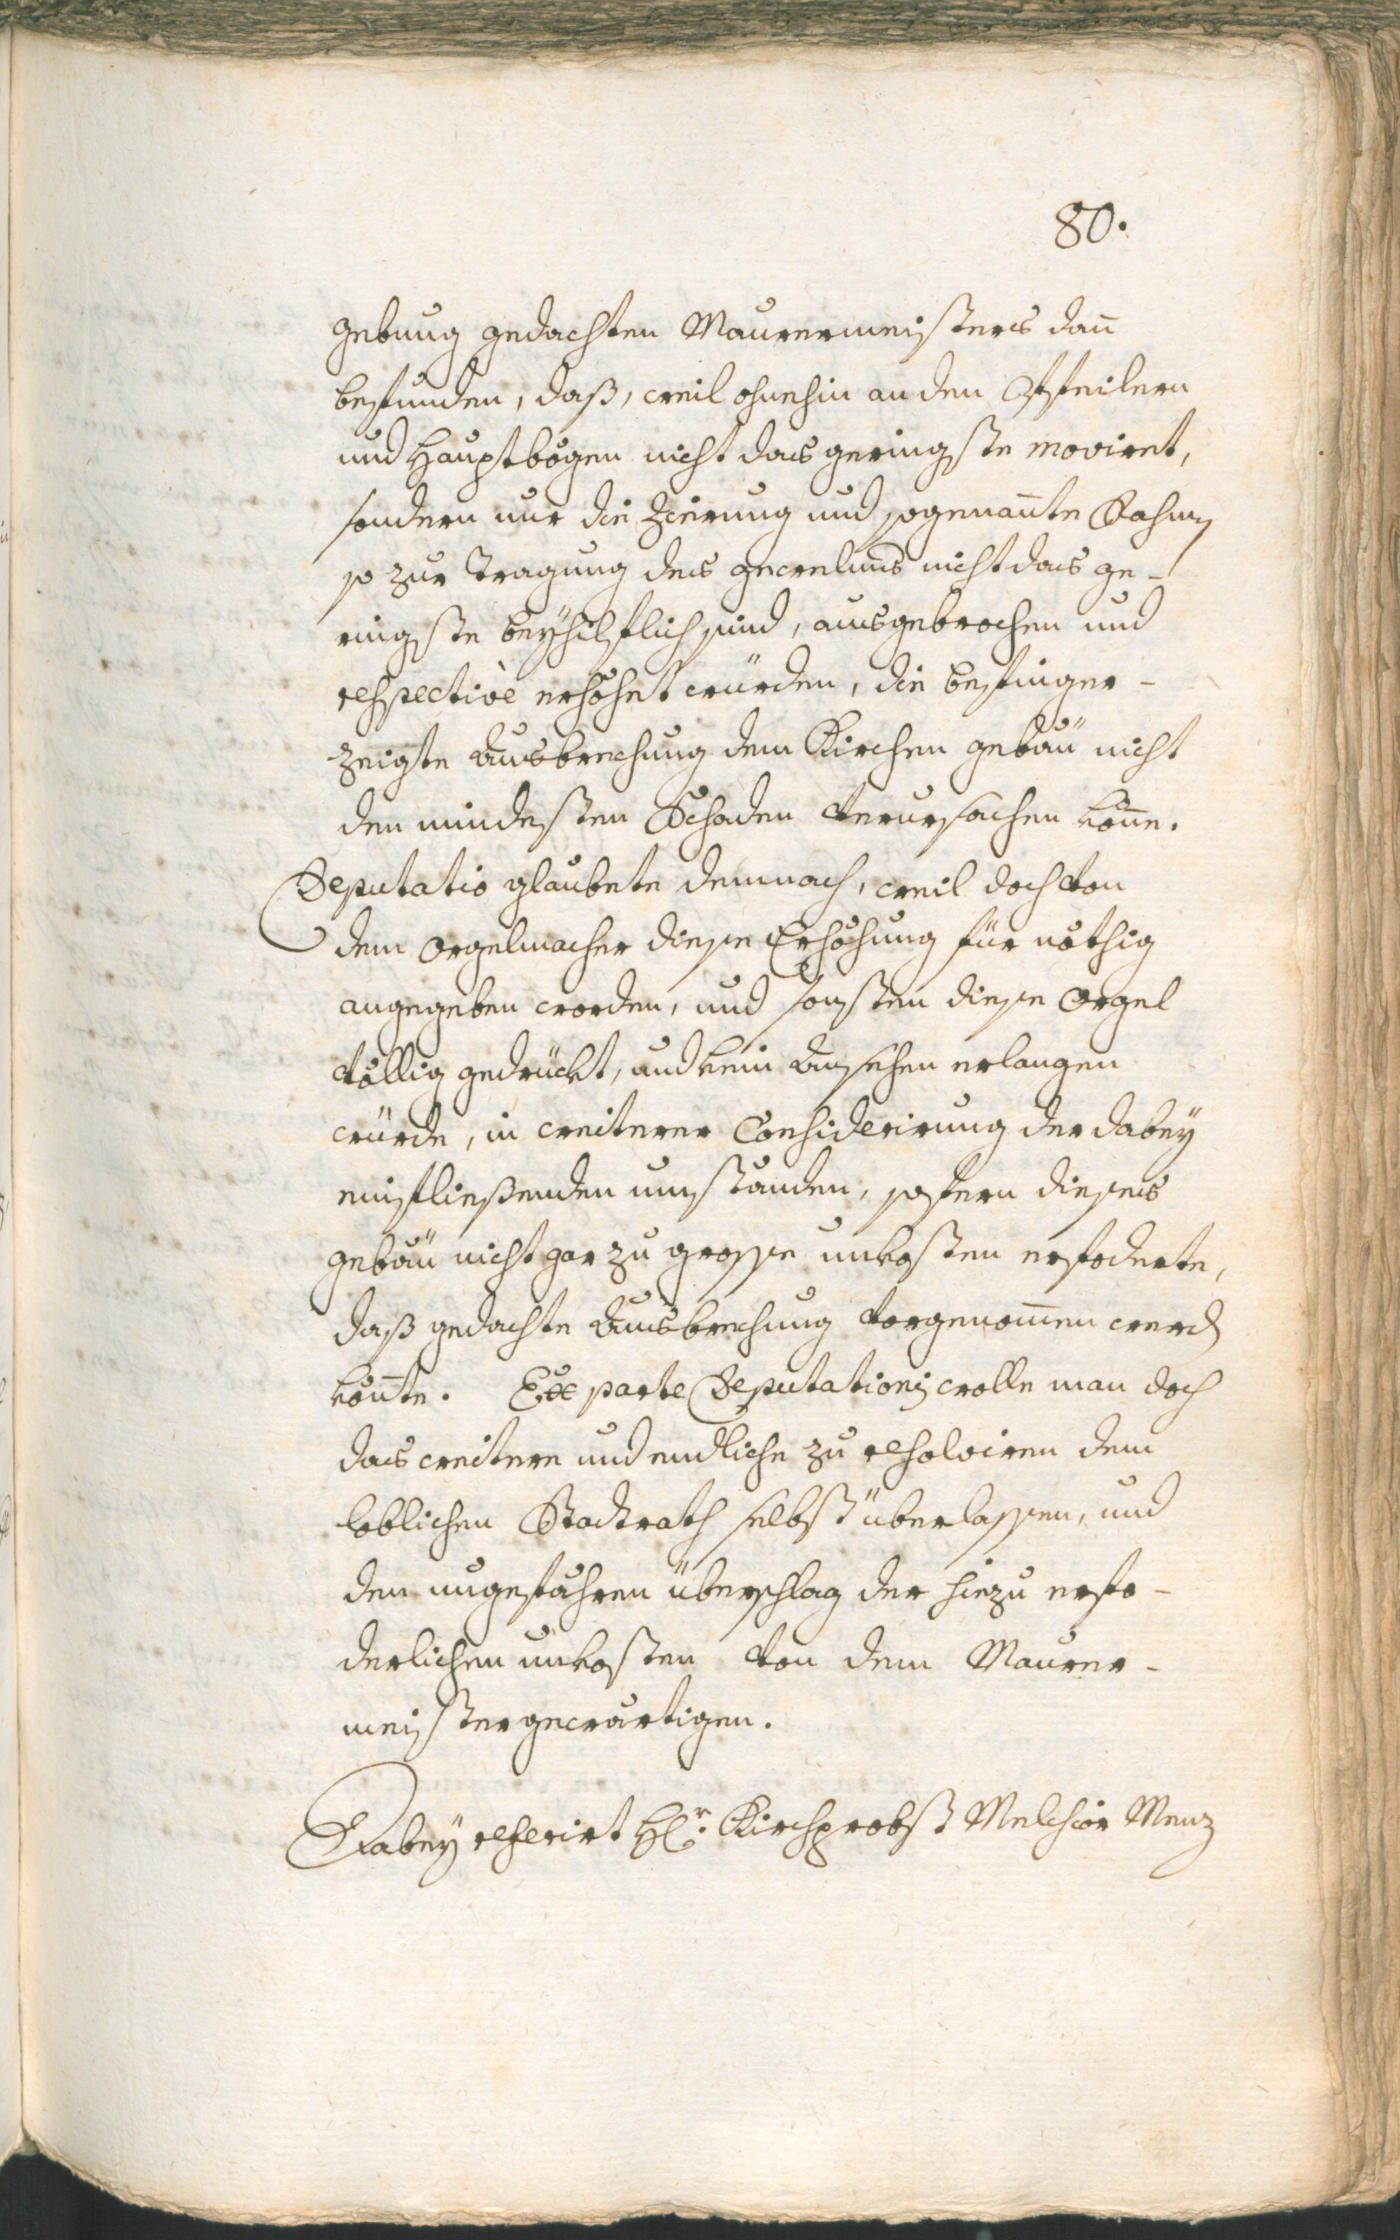 80.
gebung gedachten Maurermeisters dañ
befunden, daß, weil ohnehin an den Pfeilern
und Hauptbögen nicht das geringste moviret,
sondern nur die Zierung und sogenañte Rahmen
so zur Tragung des gewelms nicht das ge-
ringste beyhilflich sind, ausgebrochen und
respectivè erhöhet würden, die befinger-
zeigte Ausbrechung dem Kirchen gebäu nicht
den mindesten Schaden verursachen köñe.
Deputatio glaubete demnach, weil doch von
dem Orgelmacher diese Erhöhung für nöthig
angegeben worden, und sonsten diese Orgel
völlig gedrückt, und kein Ansehen erlangen
würde, in weiterer Considerirung der dabey
einfließenden umständen, sofern dieses
gebäu nicht gar zu grosse unkosten erfoderte,
daß gedachte Ausbrechung vorgenom̃en werden
köñte. Ex parte Deputationis wolle man doch
das weitere und endliche zu resolviren dem
löblichen Stadtrath selbst überlassen, und
den ungefähren überschlag der hiezu erfo-
derlichen unkosten von dem Maurer-
meister gewärtigen.
Dabey referirt H[er]r. Kirchprobst Melchior Menz